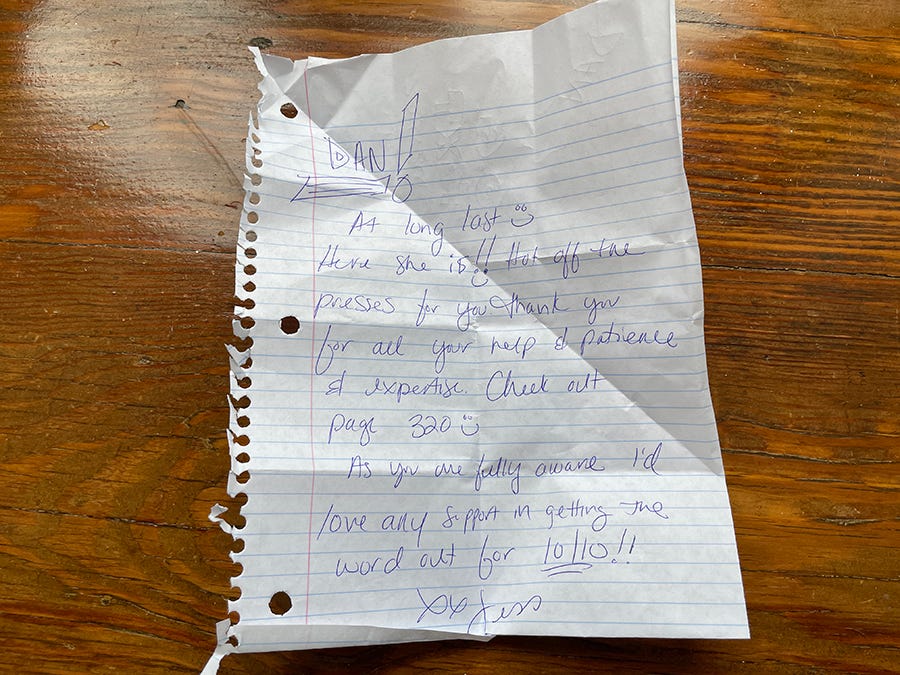 DAN!
At long last
Here she is!! Hot off the
presses for you thank you
for all your help & patience
& expertise. Check out
page 320
As you are fully aware I'd
love any support in getting the
word out for 10/10!!
xx Jess